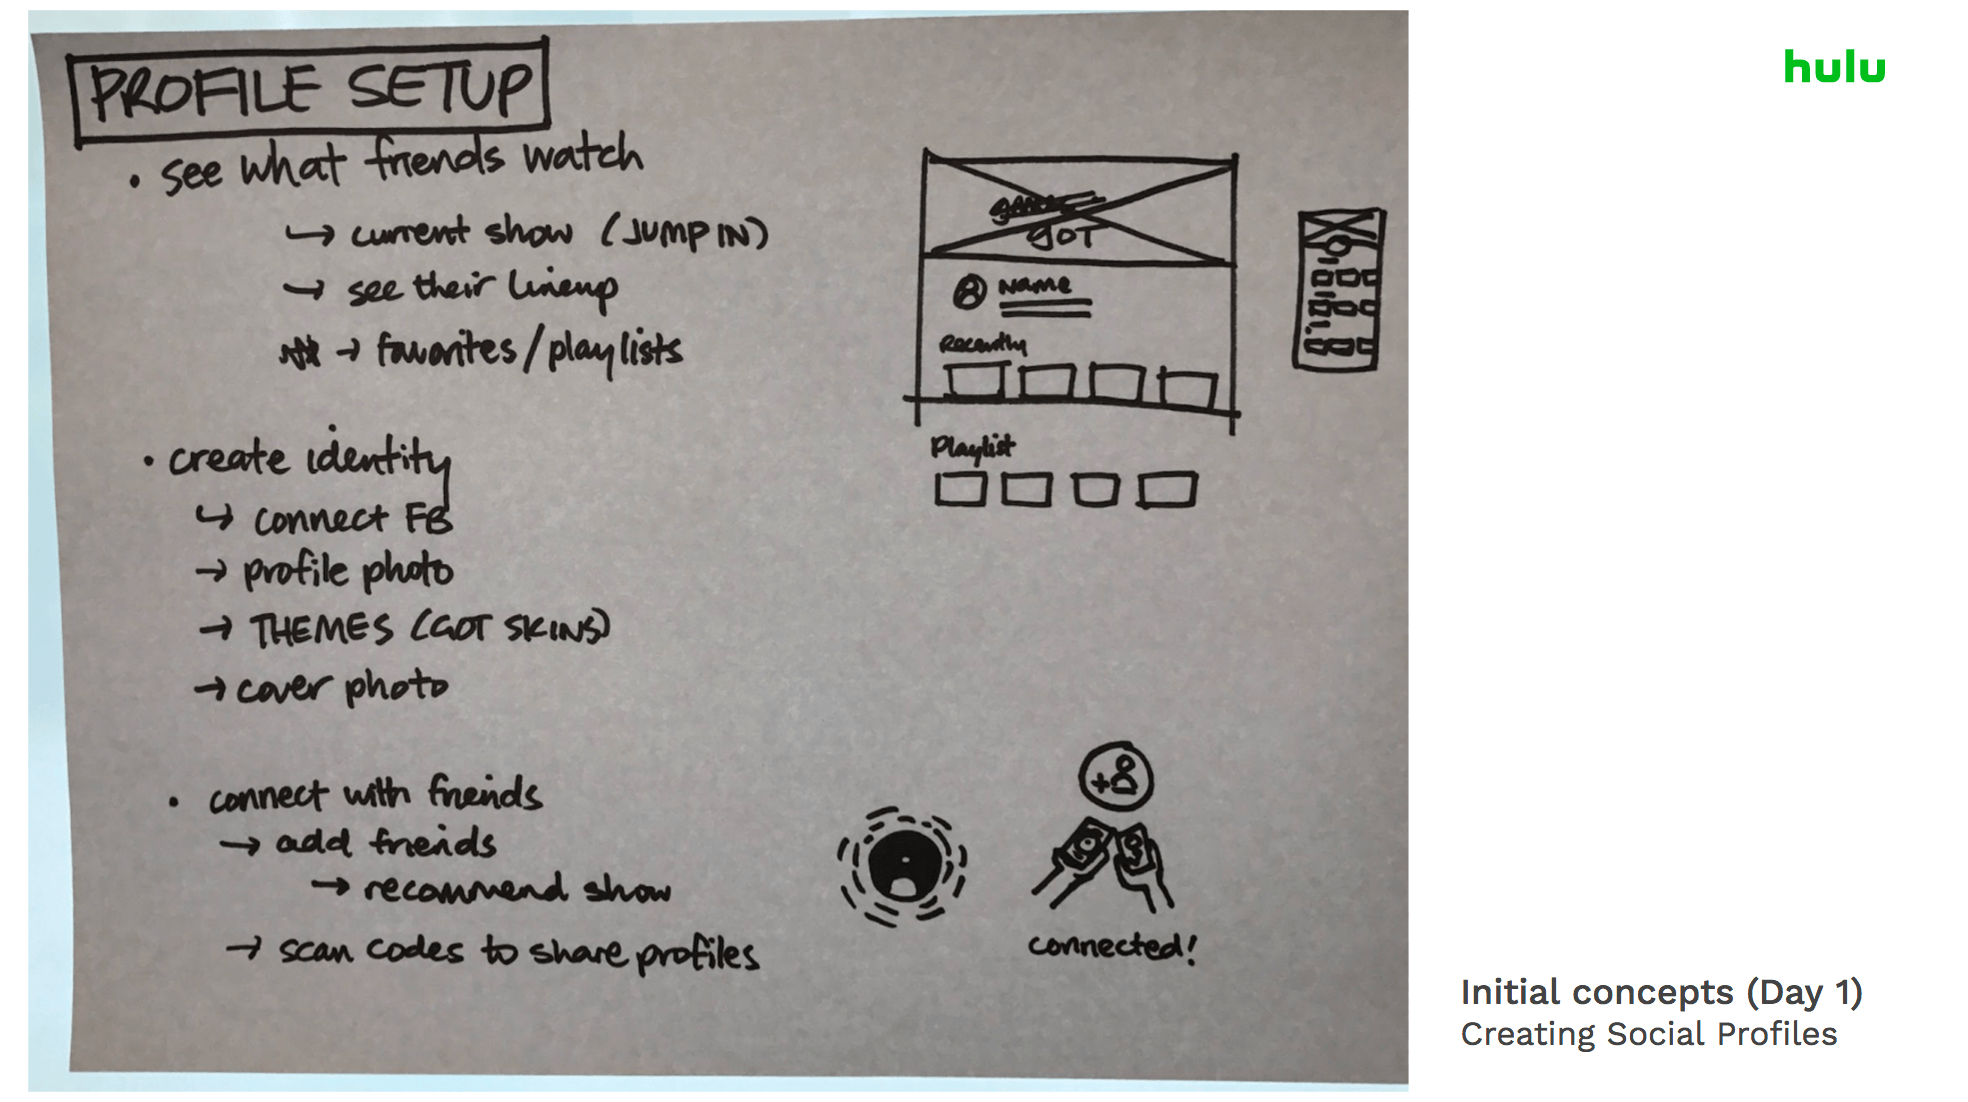 PROFILE SETUP
• see what friends watch
↳ current show (JUMP IN)
↳ see their lineup
→ favorites/playlists
• create identity
↳ connect FB
→ profile photo
→ THEMES (GOT SKINS)
→ cover photo
• connect with friends
→ add friends
→ recommend show
→ scan codes to share profiles
GOT
Name
Recently
Playlist
+
connected!
hulu
Initial concepts (Day 1)
Creating Social Profiles